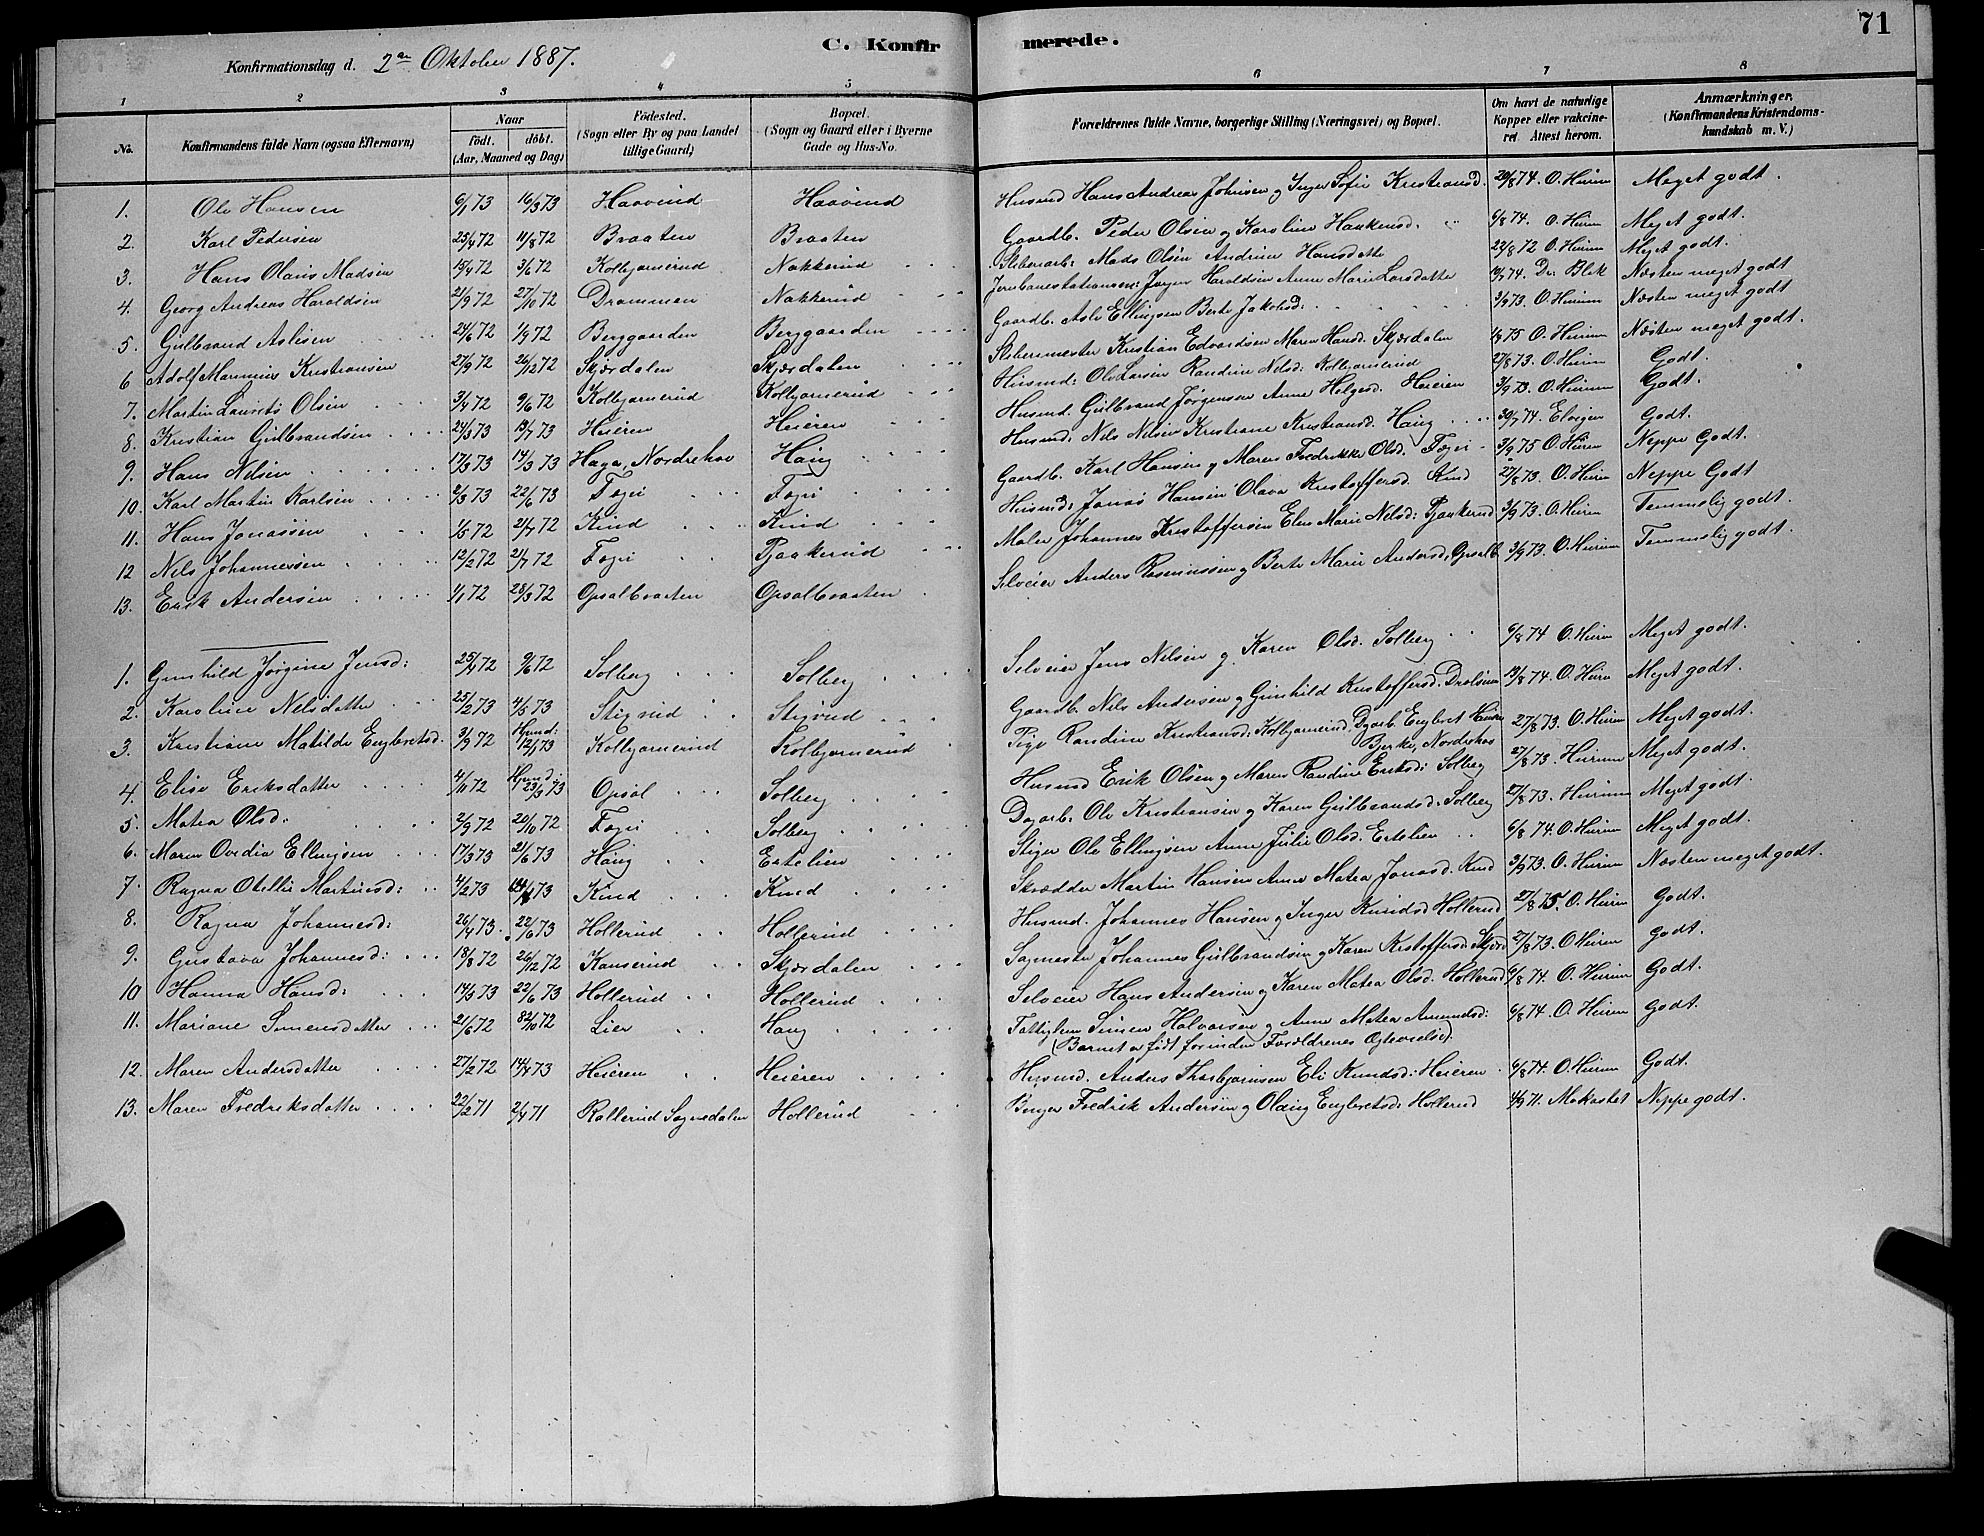 C. Konfirmerede. 71
Konfirmationsdag d. 2den Oktober 1887.
1 2 3 4 5 6 7 8
No. Konfirmandens fulde Navn (ogsaa Efternavn) Naar födt. döbt. (Aar, Maaned og Dag) Födested. (Sogn eller By og paa Landet tillige Gaard) Bopæl. (Sogn og Gaard eller i Byerne Gade og Hus-No. Forældrenes fulde Navne, borgerlige Stilling (Næringsvei) og Bopæl. Om havt de naturlige Kopper eller vakcineret Attest herom. Anmærkninger. (Konfirmandens Kristendomskundskab m. V.)
1. Ole Hansen 6/1 73 16/3 73 Haavind Haavind Husmd Hans Andreas Johnsen og Inger Sofie Kristiansd. 20/8 74. O. Heiren Meget godt.
2. Karl Pedersen 25/4 72 11/8 72 Braaten Braaten Gaardb. Peder Olsen og Karoline Haakensd. 6/8 74. O. Heiren Meget godt.
3. Hans Olaus Madsen 15/4 72 3/6 72 Kolbjørnerud Nakkerud Sliberiarb: Mads Olsen Andrine Hansdatter 22/8 72 O. Heiren Meget godt.
4. Georg Andreas Haroldsen 21/9 72 27/10 72 Drammen Nakkerud Jernbanestationsm: Jørgen Haroldsen Anne Marie Larsdatter 19/7 74. Dr. Blik Næsten meget godt
5. Gulbrand Aslesen 24/6 72 1/9 72 Berggaarden Berggaarden Gaardb. Asle Ellingsen Berte Jakobsd: 3/9 73. O. Heiren Næsten meget godt
6 Adolf Marinius Kristiansen 27/9 72 26/12 72 Skjærdalen Skjærdalen Slibermester Kristian Edvardsen Maren Hansd. Skjærdalen 1/9 75 O. Heiren Næsten meget godt.
7. Martin Laurits Olsen 3/4 72 9/6 72 Kolbjørnerud Kolbjørnerud Husmd: Ole Larsen Randine Nilsd: Kolbjørnerud 27/8 73. O. Heiren Godt.
8. Kristian Gulbrandsen 24/3 73 13/7 73 Heieren Heieren Husmd. Gulbrand Jørgensen Anne Helgesd. Heieren 3/9 73. O. Heiren Godt.
9. Hans Nilsen 17/3 73 14/3 73 Haga, Norderhov Haug Husmd: Nils Nilsen Kristiane Kristiansd. Haug 30/7 74. Elvejen Godt.
10. Karl Martin Karlsen 2/3 73 22/6 73 Fegri Fegri Gaardb. Karl Hansen og Maren Fredrikke Olsd. Fegri 3/9 75 O. Heiren Neppe Godt.
11. Hans Jonassen 1/5 72 21/7 72 Kind Kind Husmd: Jonas Hansen Olava Kristoffersd. Kind 27/8 73. O. Heiren Neppe Godt
12 Nils Johannesen 12/2 72 21/7 72 Fegri Pjaakerud Maler Johannes Kristoffersen Elen Marie Nelsd: Pjaakerud 3/9 73. O. Heiren Temmelig godt.
13. Erik Andersen 1/1 72 28/3 72 Opsalbraaten Opsalbraaten Selveier Anders Rasmussen og Berte Marie Andersd, Opsalb. 3/9 73. O. Heiren Temmelig godt.
1. Gunhild Jørgine Jensd: 25/4 72 9/6 72 Solberg Solberg Selveier Jens Nilsen og Karen Olsd. Solberg 6/8 74 O. Heiren Meget godt.
2. Karoline Nelsdatter 25/2 73 4/5 73 Stigrud Stigrud Gaardb. Nils Andersen og Gunhild Kristoffersd. Drolsum 19/8 74. O. Heiren Meget godt.
3. Kristiane Matilde Engebretsd. 3/9 72 Hjmd: 12/1 73 Kolbjørnerud Kolbjørnerud Pige Randine Kristiansd: Kolbjørnerud, Dgarb. Engebret Bjerke, Norderhov 27/8 73. O. Heiren Meget godt.
4. Elise Eriksdatter 4/11 72 Hjmd: 23/3 73 Opsal Solberg Husmd Erik Olsen og Maren Randine Eriksd: Solberg 27/8 73 Heiren Meget godt.
5. Matea Olsd: 2/9 72 20/10 72 Fegri Solberg Dgarb. Ole Kristiansen og Karen Gulbrandsd. Solberg 27/8 73. Heiren Meget godt.
6. Maren Ovedia Ellingsen 17/3 73 21/6 73 Haug Ertelien Stiger Ole Ellingsen Anne Julie Olsd. Ertelien 6/8 74. O. Heiren Meget godt.
7. Ragna Otellie Martinsd: 4/2 73 14/4 73 Kind Kind Skrædder Martin Hansen Anne Matea Jonasd. Kind 3/9 73. O. Heiren Næsten meget godt.
8. Ragna Johannesd: 26/4 73. 22/6 73 Hollerud Hollerud Husmd. Johannes Hansen og Inger Knudsd Hollerud 27/8 75. O. Heiren Godt.
9. Gustava Johannesd: 18/8 72 26/12 72 Kanserud Skjærdalen Sagmester Johannes Gulbrandsen og Karen Kristoffersd. Skjærd 27/8 73. O Heiren Godt.
10 Hanna Hansd: 14/3 73 22/6 73 Hollerud Hollerud Selveier Hans Andersen og Karen Matea Olsd. Hollerud 6/8 74. O. Heiren Godt.
11. Mariane Simensdatter 21/6 72 /10 72 Lier Haug Fattiglem Simen Halvorsen og Anne Matea Amundsd: 6/8 74. O. Heiren Godt.
(Barnet er født forinden Forældrenes Ægtevielse).
12. Maren Andersdatter 27/2 72 14/4 73 Heieren Heieren Husmd. Anders Thorbjørnsen Eli Knudsd: Heieren 6/8 74. O. Heiren Godt.
13. Maren Fredriksdatter 22/2 71 2/4 71 Rallerud Sognedalen Hollerud Bruger Fredrik Andersen og Olaug Engebretsd: Hollerud 4/9 71. Mokastet Neppe godt.